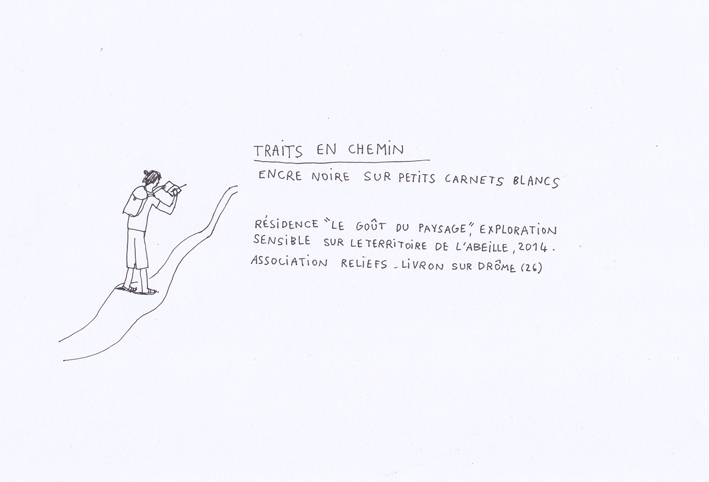 TRAITS EN CHEMIN
ENCRE NOIRE SUR PETITS CARNETS BLANCS
RÉSIDENCE "LE GOÛT DU PAYSAGE", EXPLORATION
SENSIBLE SUR LE TERRITOIRE DE L'ABEILLE, 2014.
ASSOCIATION RELIEFS - LIVRON SUR DRÔME (26)